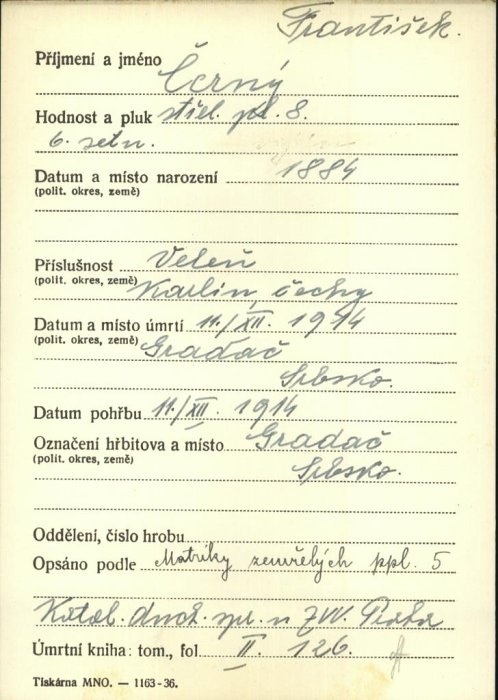 František.
Příjmení a jméno Černý
Hodnost a pluk střel. pl. 8.
6. setn.
Datum a místo narození 1884
(polit. okres, země)
Příslušnost Veleň
(polit. okres, země) Karlín, Čechy
Datum a místo úmrtí 11./XII. 1914
(polit. okres, země) Gradač
Srbsko.
Datum pohřbu 11./XII. 1914
Označení hřbitova a místo Gradač
(polit. okres, země) Srbsko.
Oddělení, číslo hrobu
Opsáno podle Matriky zemřelých ppl. 5
Katol. duch. spr. u ZVV. Praha
Úmrtní kniha: tom., fol. II. 126.
Tiskárna MNO. — 1163-36.